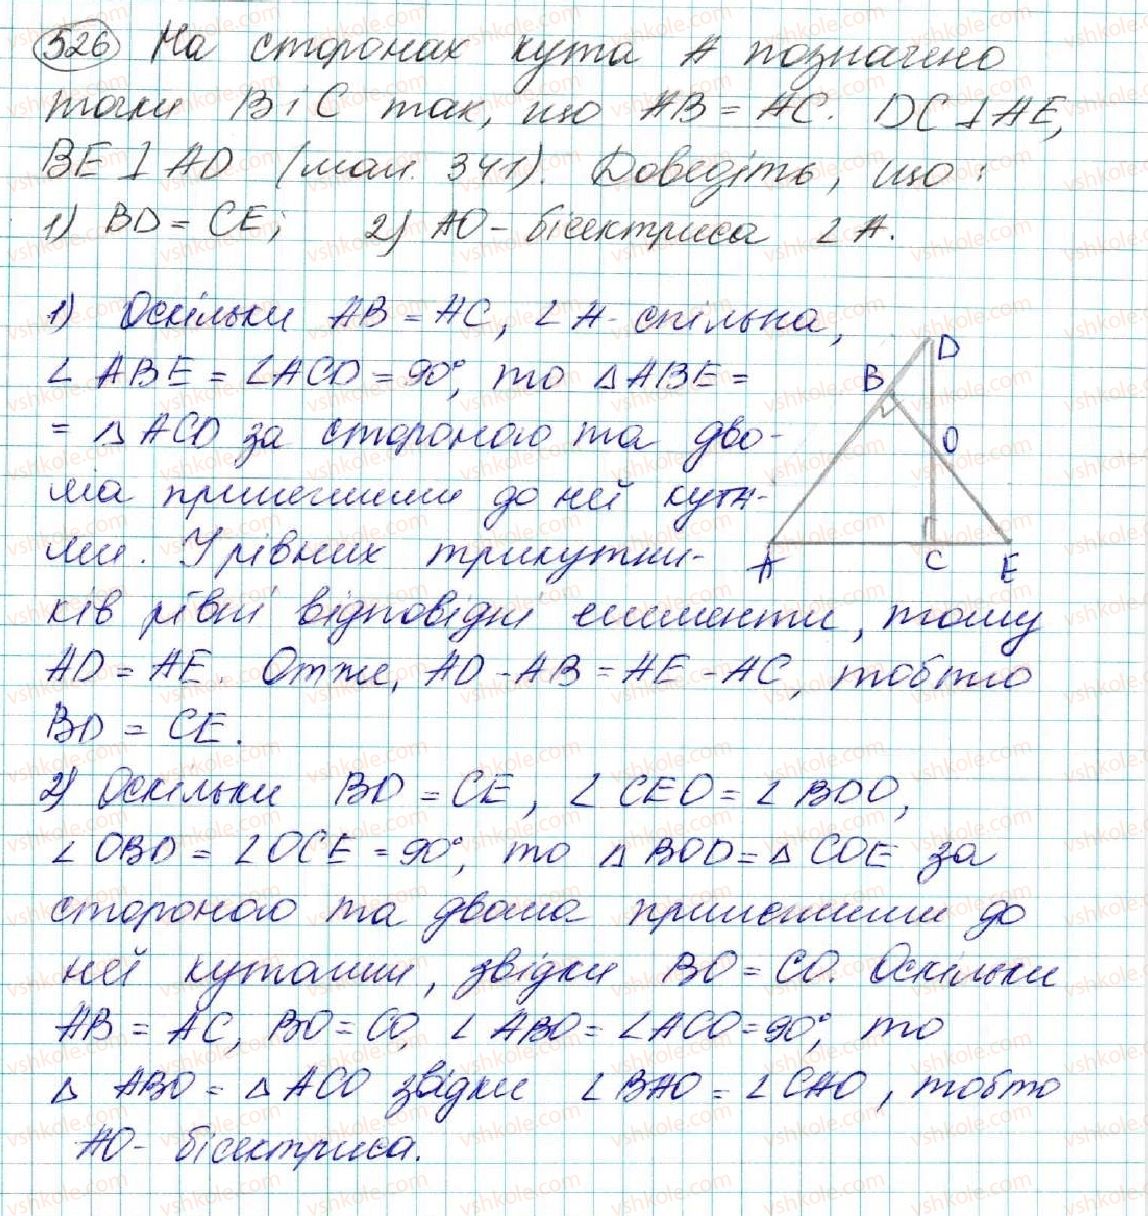 326 На сторонах кута A позначено
точки B і C так, що AB = AC. DC ⊥ AE,
BE ⊥ AD (мал. 341). Доведіть, що:
1) BD = CE; 2) AO - бісектриса ∠A.
1) Оскільки AB = AC, ∠A - спільна,
∠ABE = ∠ACD = 90°, то △ABE =
= △ACD за стороною та дво-
ма прилеглими до неї кута-
ми. У рівних трикутни-
ків рівні відповідні елементи, тому
AD = AE. Отже, AD - AB = AE - AC, тобто
BD = CE.
D
B
O
A
C
E
2) Оскільки BD = CE, ∠CEO = ∠BDO,
∠OBD = ∠OCE = 90°, то △BOD = △COE за
стороною та двома прилеглими до
неї кутами, звідки BO = CO. Оскільки
AB = AC, BO = CO, ∠ABO = ∠ACO = 90°, то
△ABO = △ACO звідки ∠BAO = ∠CAO, тобто
AO - бісектриса.
vshkole.com